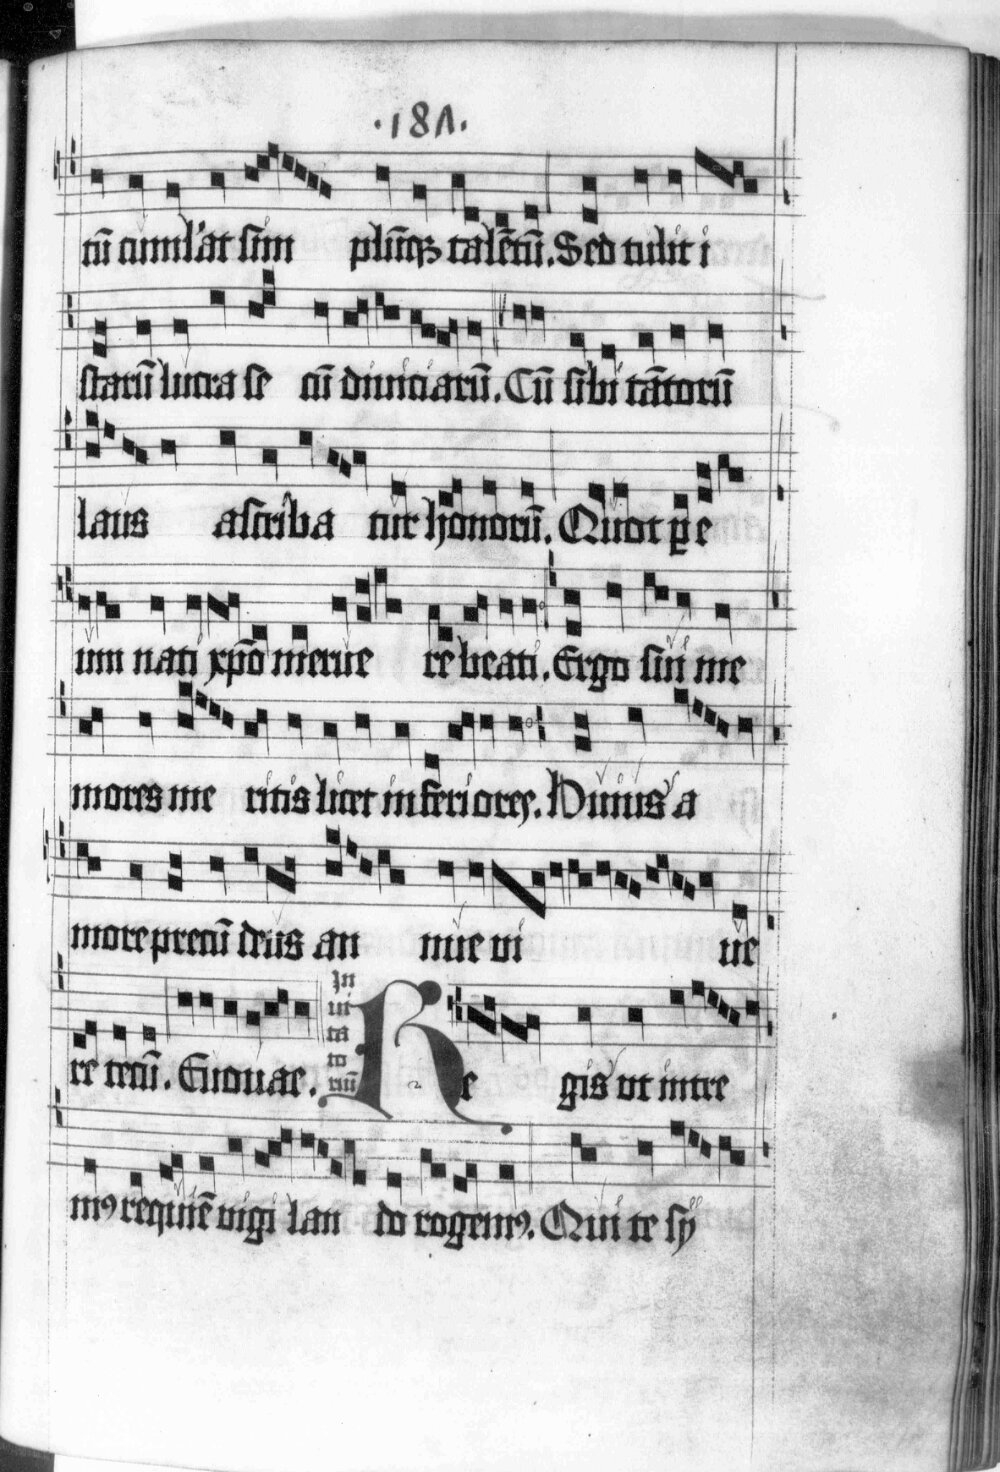 ·181·
tū cumulat sim plūq3 talētū. Sed tulit i
starū lucra se cū diuiciarū. Cū sibi tātorū
laus ascriba tur honorū. Quot pe
um nati xp̄o merue re beati. Ergo sui me
mores me ritis licet inferiores. Huius a
more precū deus an nue ui ue
re tecū. Euouae.
In
ui
ta
to
riū
Re gis ut intre
mꝰ requiē uigi lan do rogemꝰ. Qui te sÿ